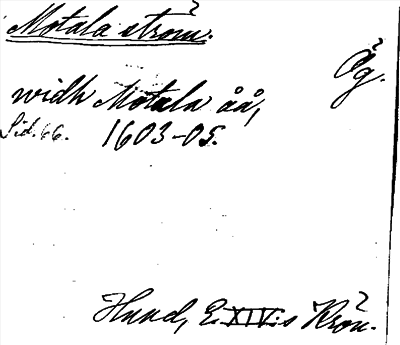 Motala ström.
Ög.
widh Motala åå,
Sid. 66. 1603-05.
Hund, E. XIV:s Krön.